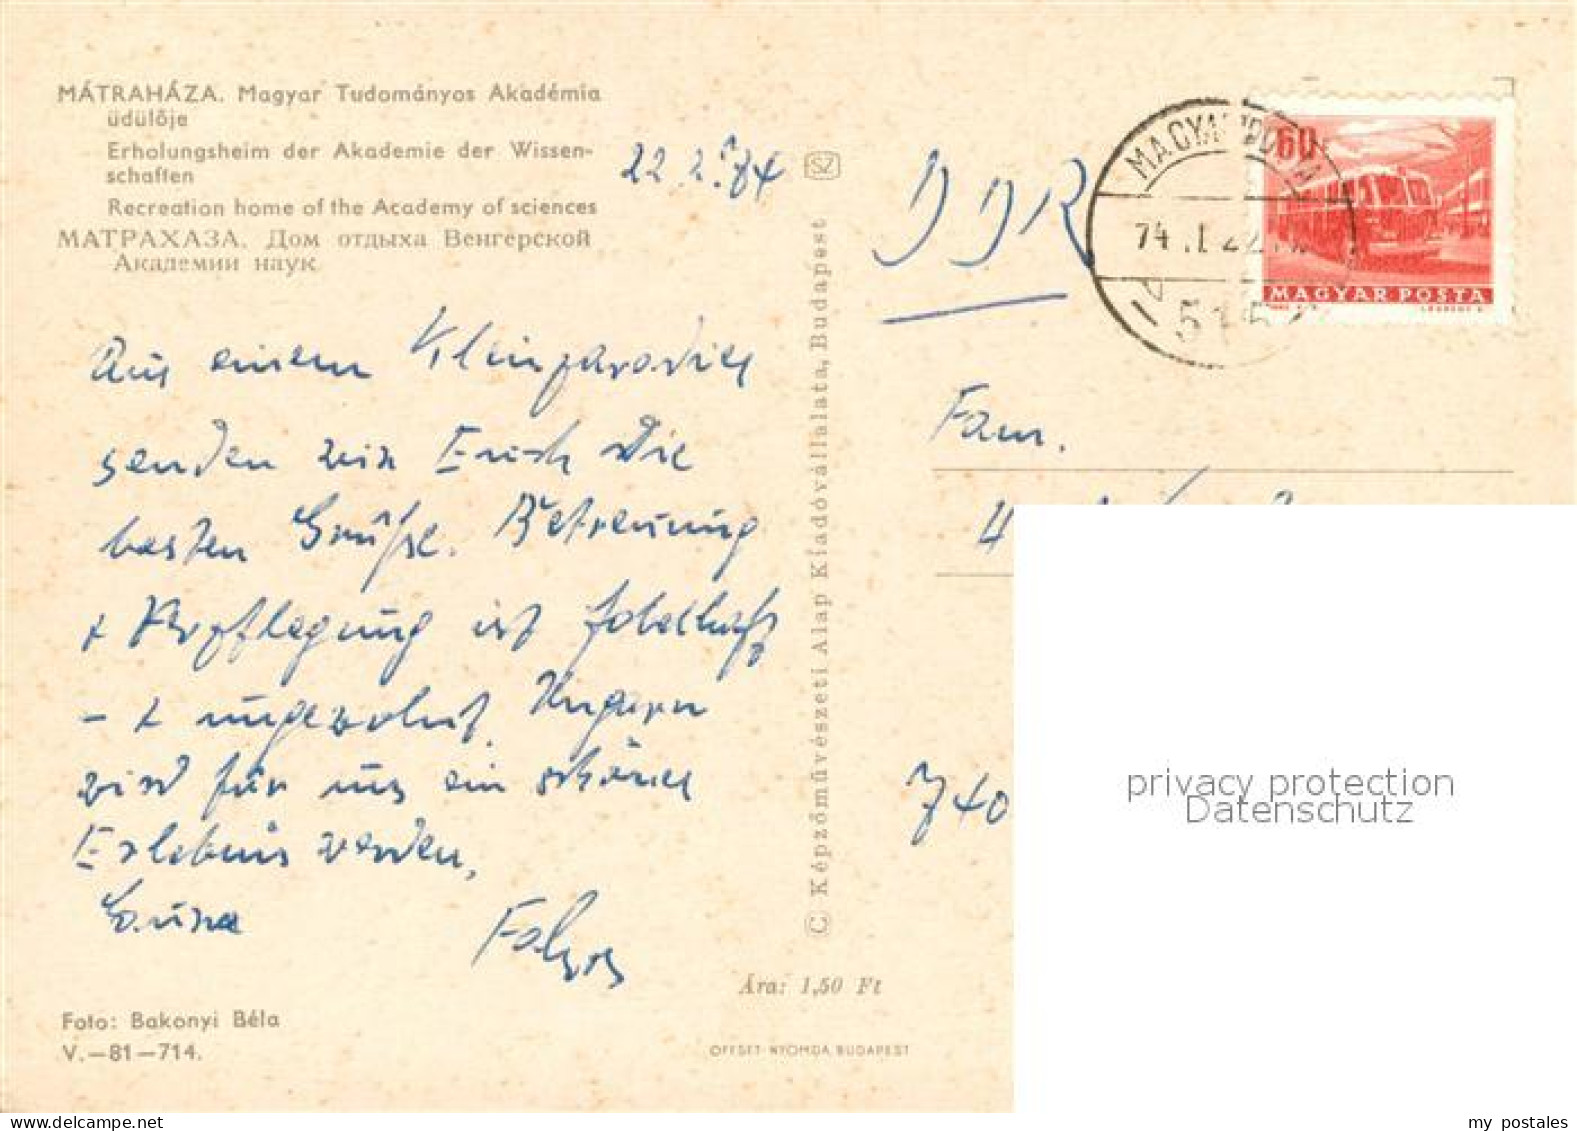 MÁTRAHÁZA. Magyar Tudományos Akadémia
üdülője
Erholungsheim der Akademie der Wissen-
schaften
Recreation home of the Academy of sciences
МАТРАХАЗА. Дом отдыха Венгерской
Академии наук
22.2.74
Aus einem Kleinparadies
senden wir Euch die
besten Grüße. Betreuung
+ Verpflegung ist fabelhaft
- + ungewohnt. Ungarn
wird für uns ein schönes
Erlebnis werden.
Eure
Foto: Bakonyi Béla
V.—81—714.
SZ
© Képzőművészeti Alap Kiadóvállalata, Budapest
Ára: 1,50 Ft
OFFSET-NYOMDA, BUDAPEST
DDR
60
MAGYAR POSTA
74 .I 22
Fam.
740
privacy protection
Datenschutz
my postales